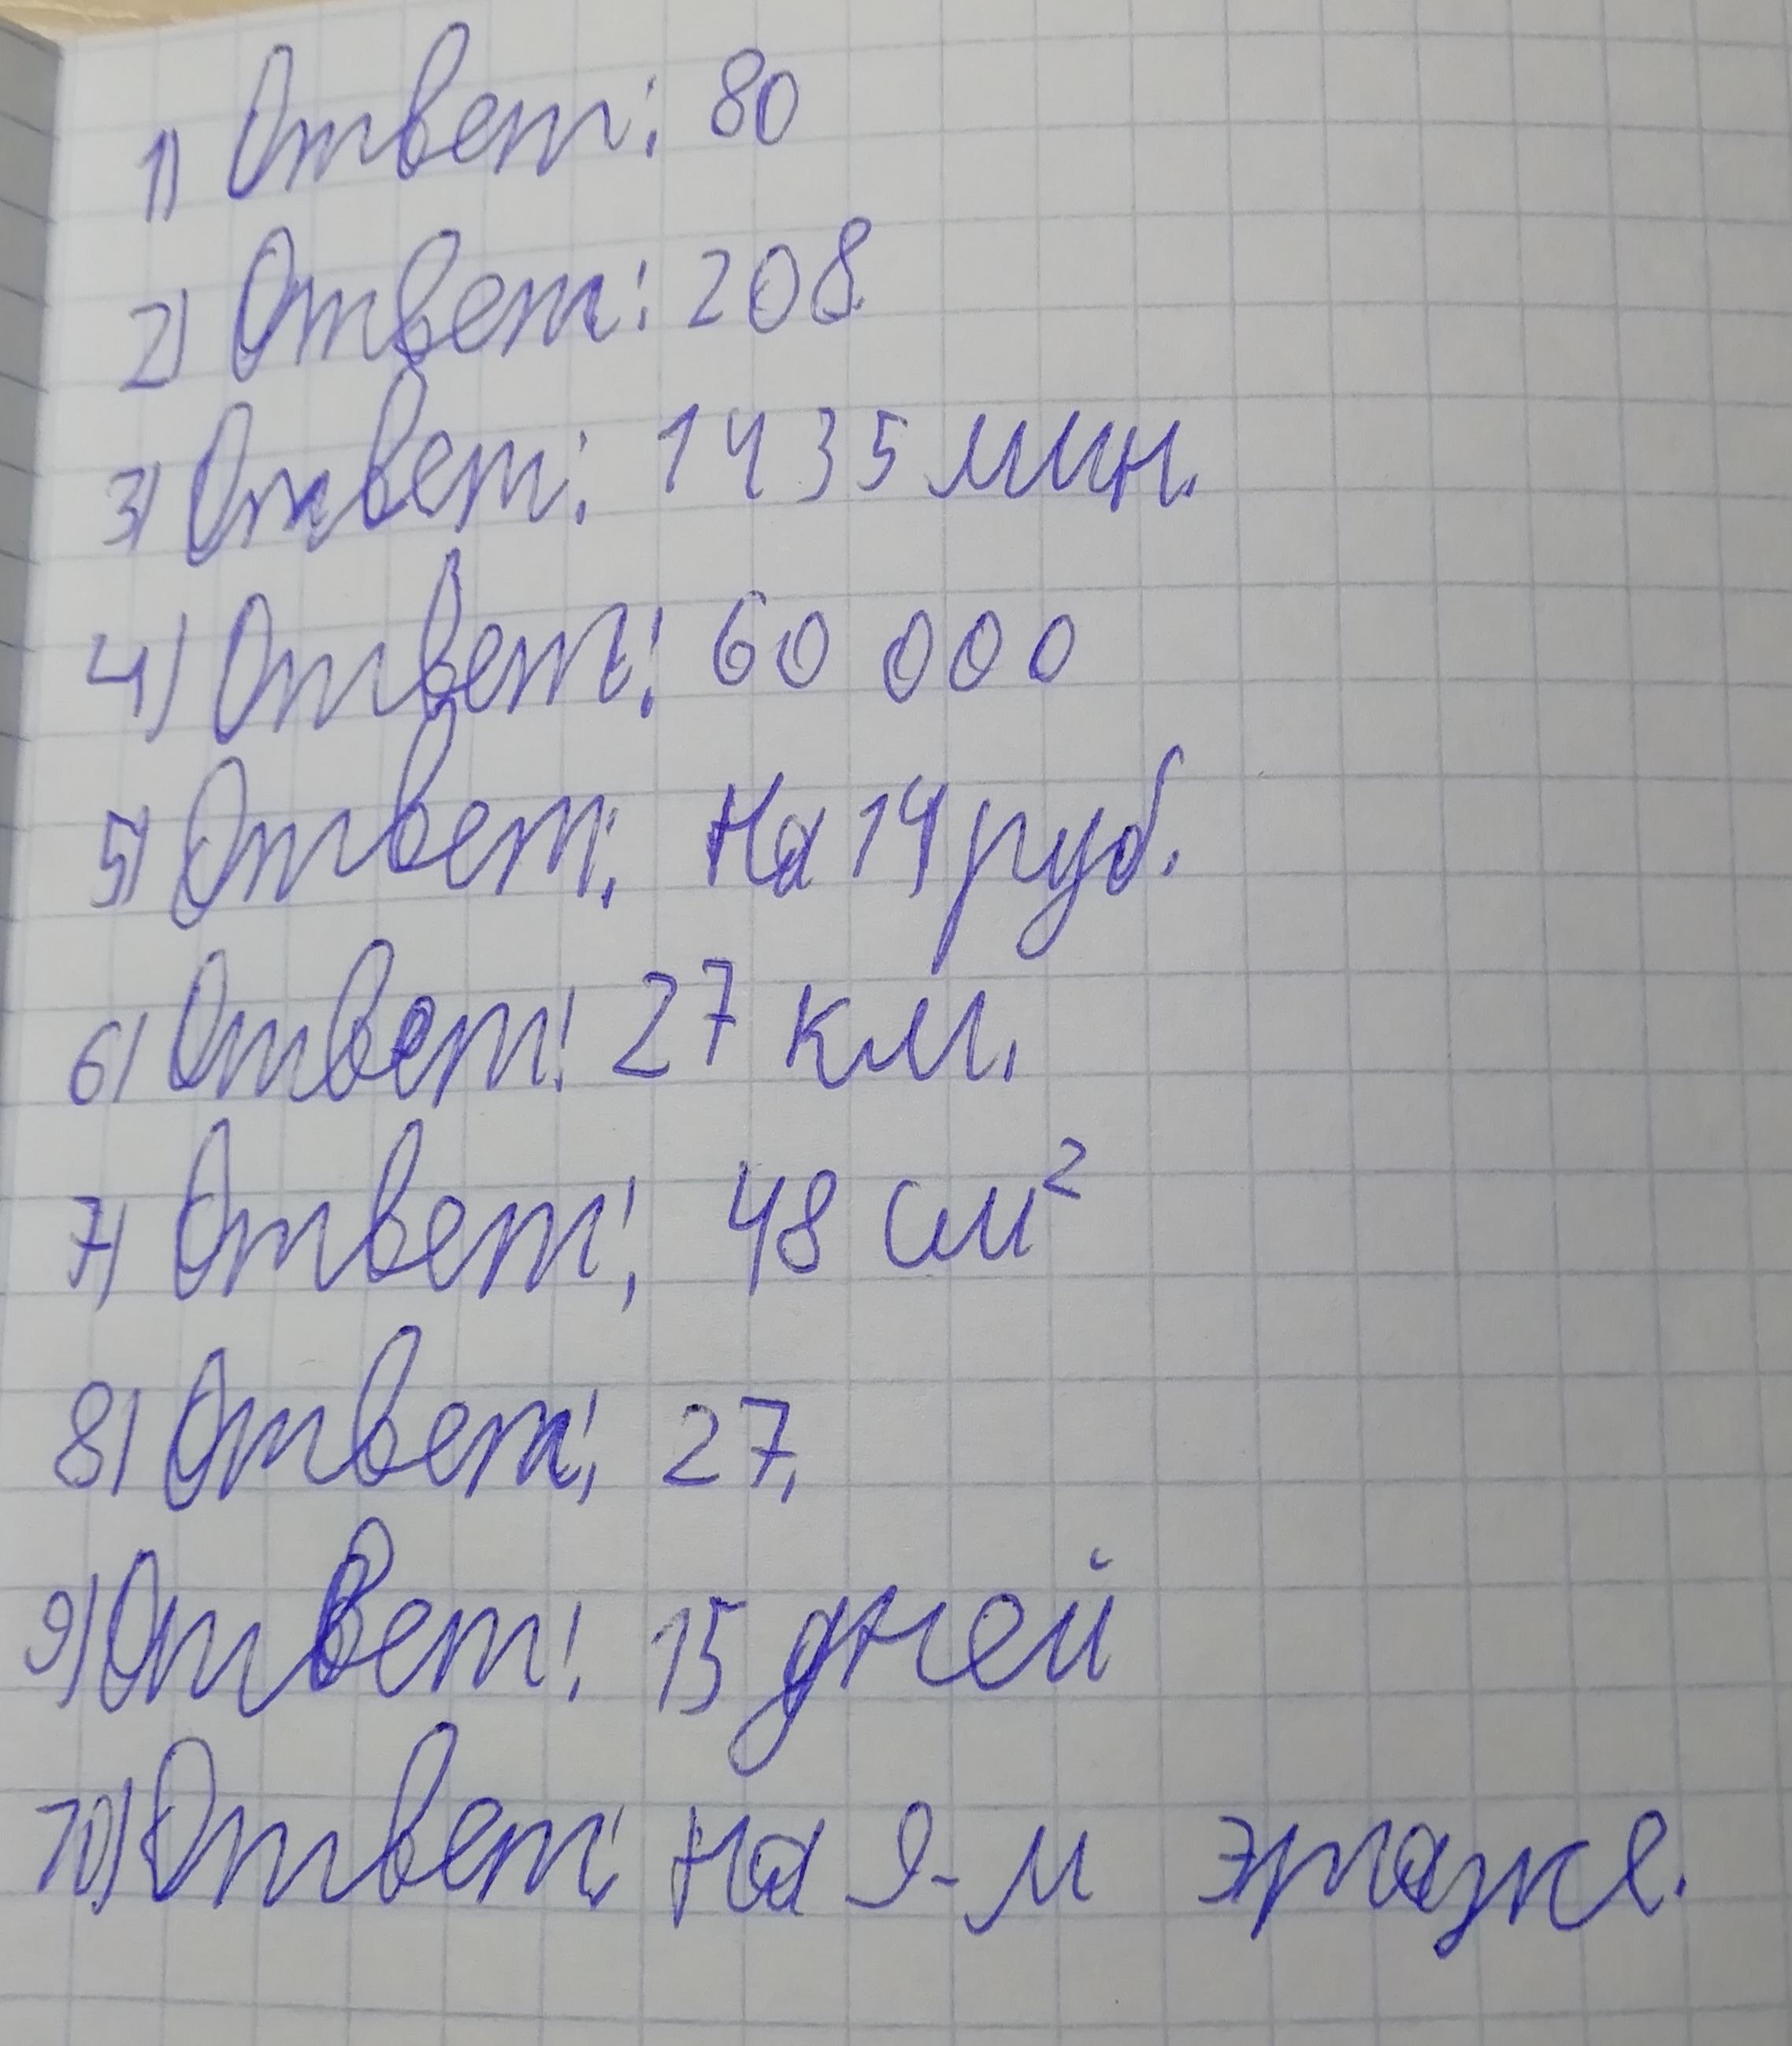 1) Ответ: 80
2) Ответ: 208
3) Ответ: 1435 мин.
4) Ответ: 60 000
5) Ответ: на 14 руб.
6) Ответ: 27 км.
7) Ответ: 48 см²
8) Ответ: 27.
9) Ответ: 15 дней
10) Ответ: на 9-м этаже.